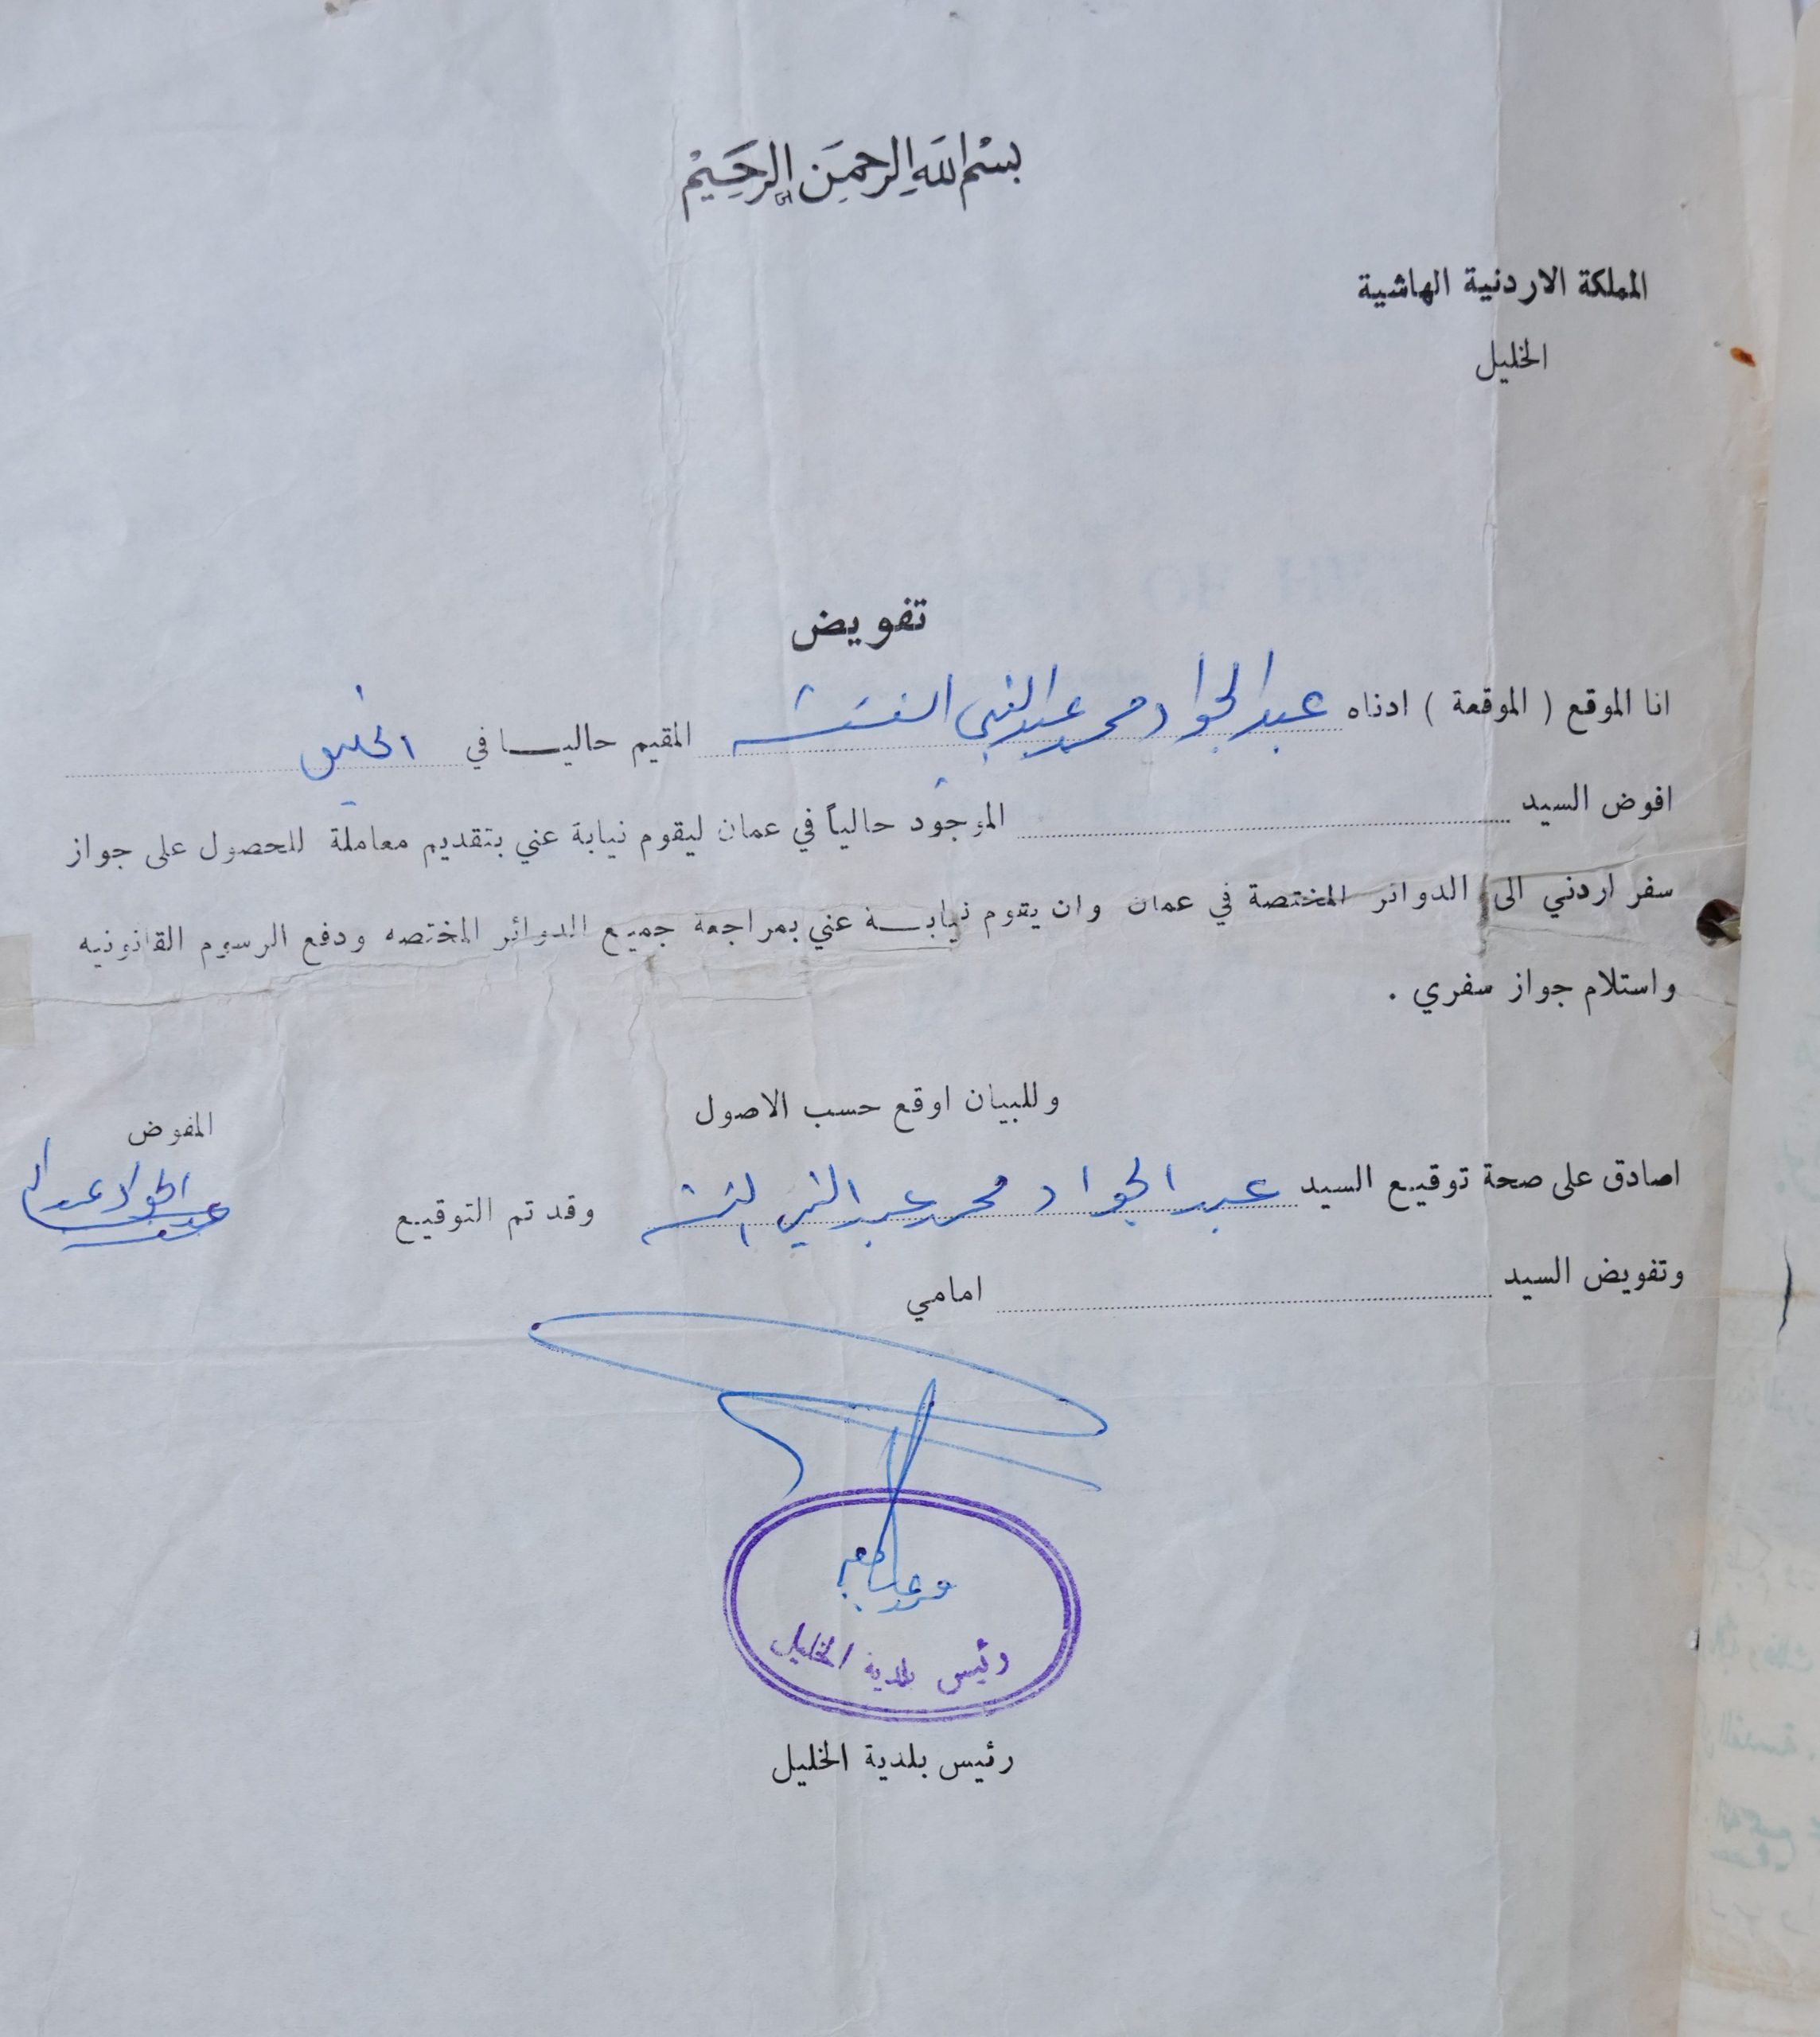 بسم الله الرحمن الرحيم
المملكة الاردنية الهاشمية
الخليل
تفويض
انا الموقع ( الموقعة ) ادناه عبد الجواد محمد عبد النبي النتشة المقيم حاليـــا في الخليل
افوض السيد الموجود حالياً في عمان ليقوم نيابة عني بتقديم معاملة للحصول على جواز
سفر اردني الى الدوائر المختصة في عمان وان يقوم نيابـــة عني بمراجعة جميع الدوائر المختصه ودفع الرسوم القانونيه
واستلام جواز سفري .
وللبيان اوقع حسب الاصول
المفوض
عبد الجواد عبد
اصادق على صحة توقيع السيد عبد الجواد محمد عبد النبي النتشة وقد تم التوقيع
وتفويض السيد امامي
رئيس بلدية الخليل
رئيس بلدية الخليل